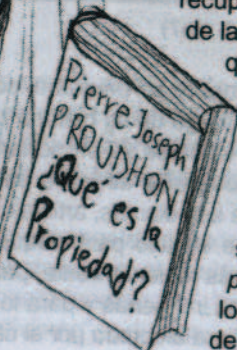 recup
de la
q
Pierre-Joseph
PROUDHON
¿Qué es la
Propiedad?
p
lo
de